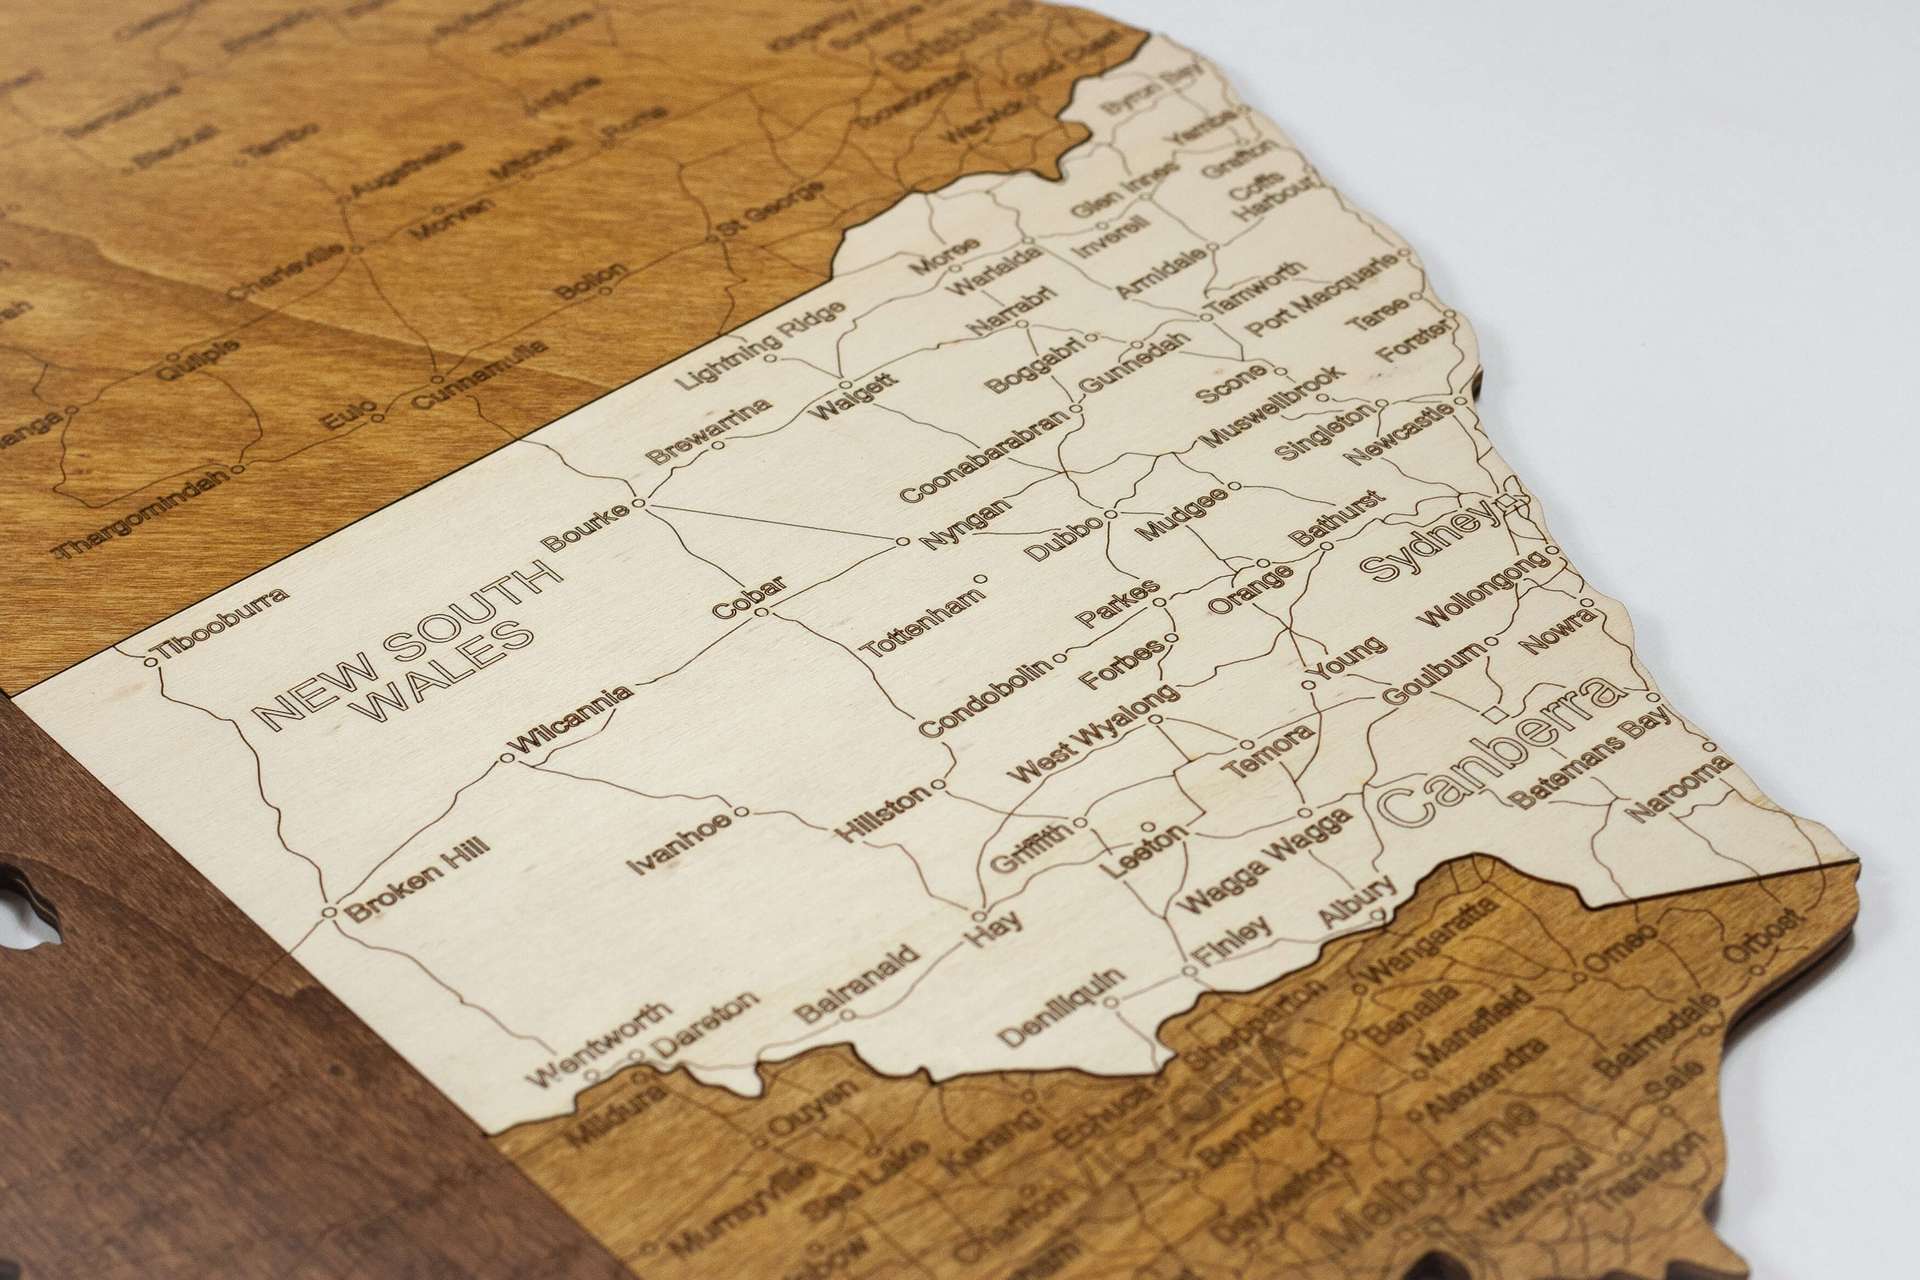 Brisbane
Gold Coast
Toowoomba
Warwick
Byron Bay
Yamba
Grafton
Coffs
Harbour
Glen Innes
Inverell
Armidale
Tambo
Augathella
Mitchell
Roma
Morven
St George
Charleville
Bollon
Quilpie
Cunnamulla
Eulo
Thargomindah
Moree
Warialda
Narrabri
Tamworth
Port Macquarie
Taree
Forster
Lightning Ridge
Boggabri
Gunnedah
Scone
Muswellbrook
Singleton
Newcastle
Walgett
Brewarrina
Coonabarabran
Bourke
Nyngan
Dubbo
Mudgee
Bathurst
Sydney
Tibooburra
NEW SOUTH
WALES
Cobar
Tottenham
Parkes
Orange
Wollongong
Nowra
Condobolin
Forbes
Young
Goulburn
Canberra
Wilcannia
West Wyalong
Temora
Batemans Bay
Narooma
Broken Hill
Ivanhoe
Hillston
Griffith
Leeton
Wagga Wagga
Albury
Hay
Finley
Deniliquin
Balranald
Wentworth
Dareton
Wangaratta
Omeo
Orbost
Shepparton
Benalla
Mansfield
Alexandra
Bairnsdale
Sale
Mildura
Ouyen
Kerang
Echuca
VICTORIA
Bendigo
Melbourne
Murrayville
Sea Lake
Charlton
Daylesford
Warragul
Traralgon